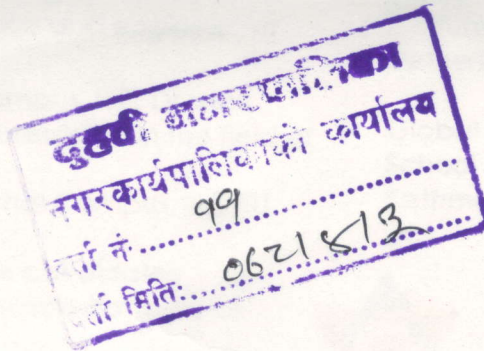 दुहवी नगरपालिका
नगरकार्यपालिकाको कार्यालय
दर्ता नं. ११
दर्ता मिति: